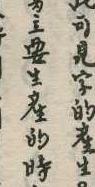 此可見字的產生
為主要生產的時